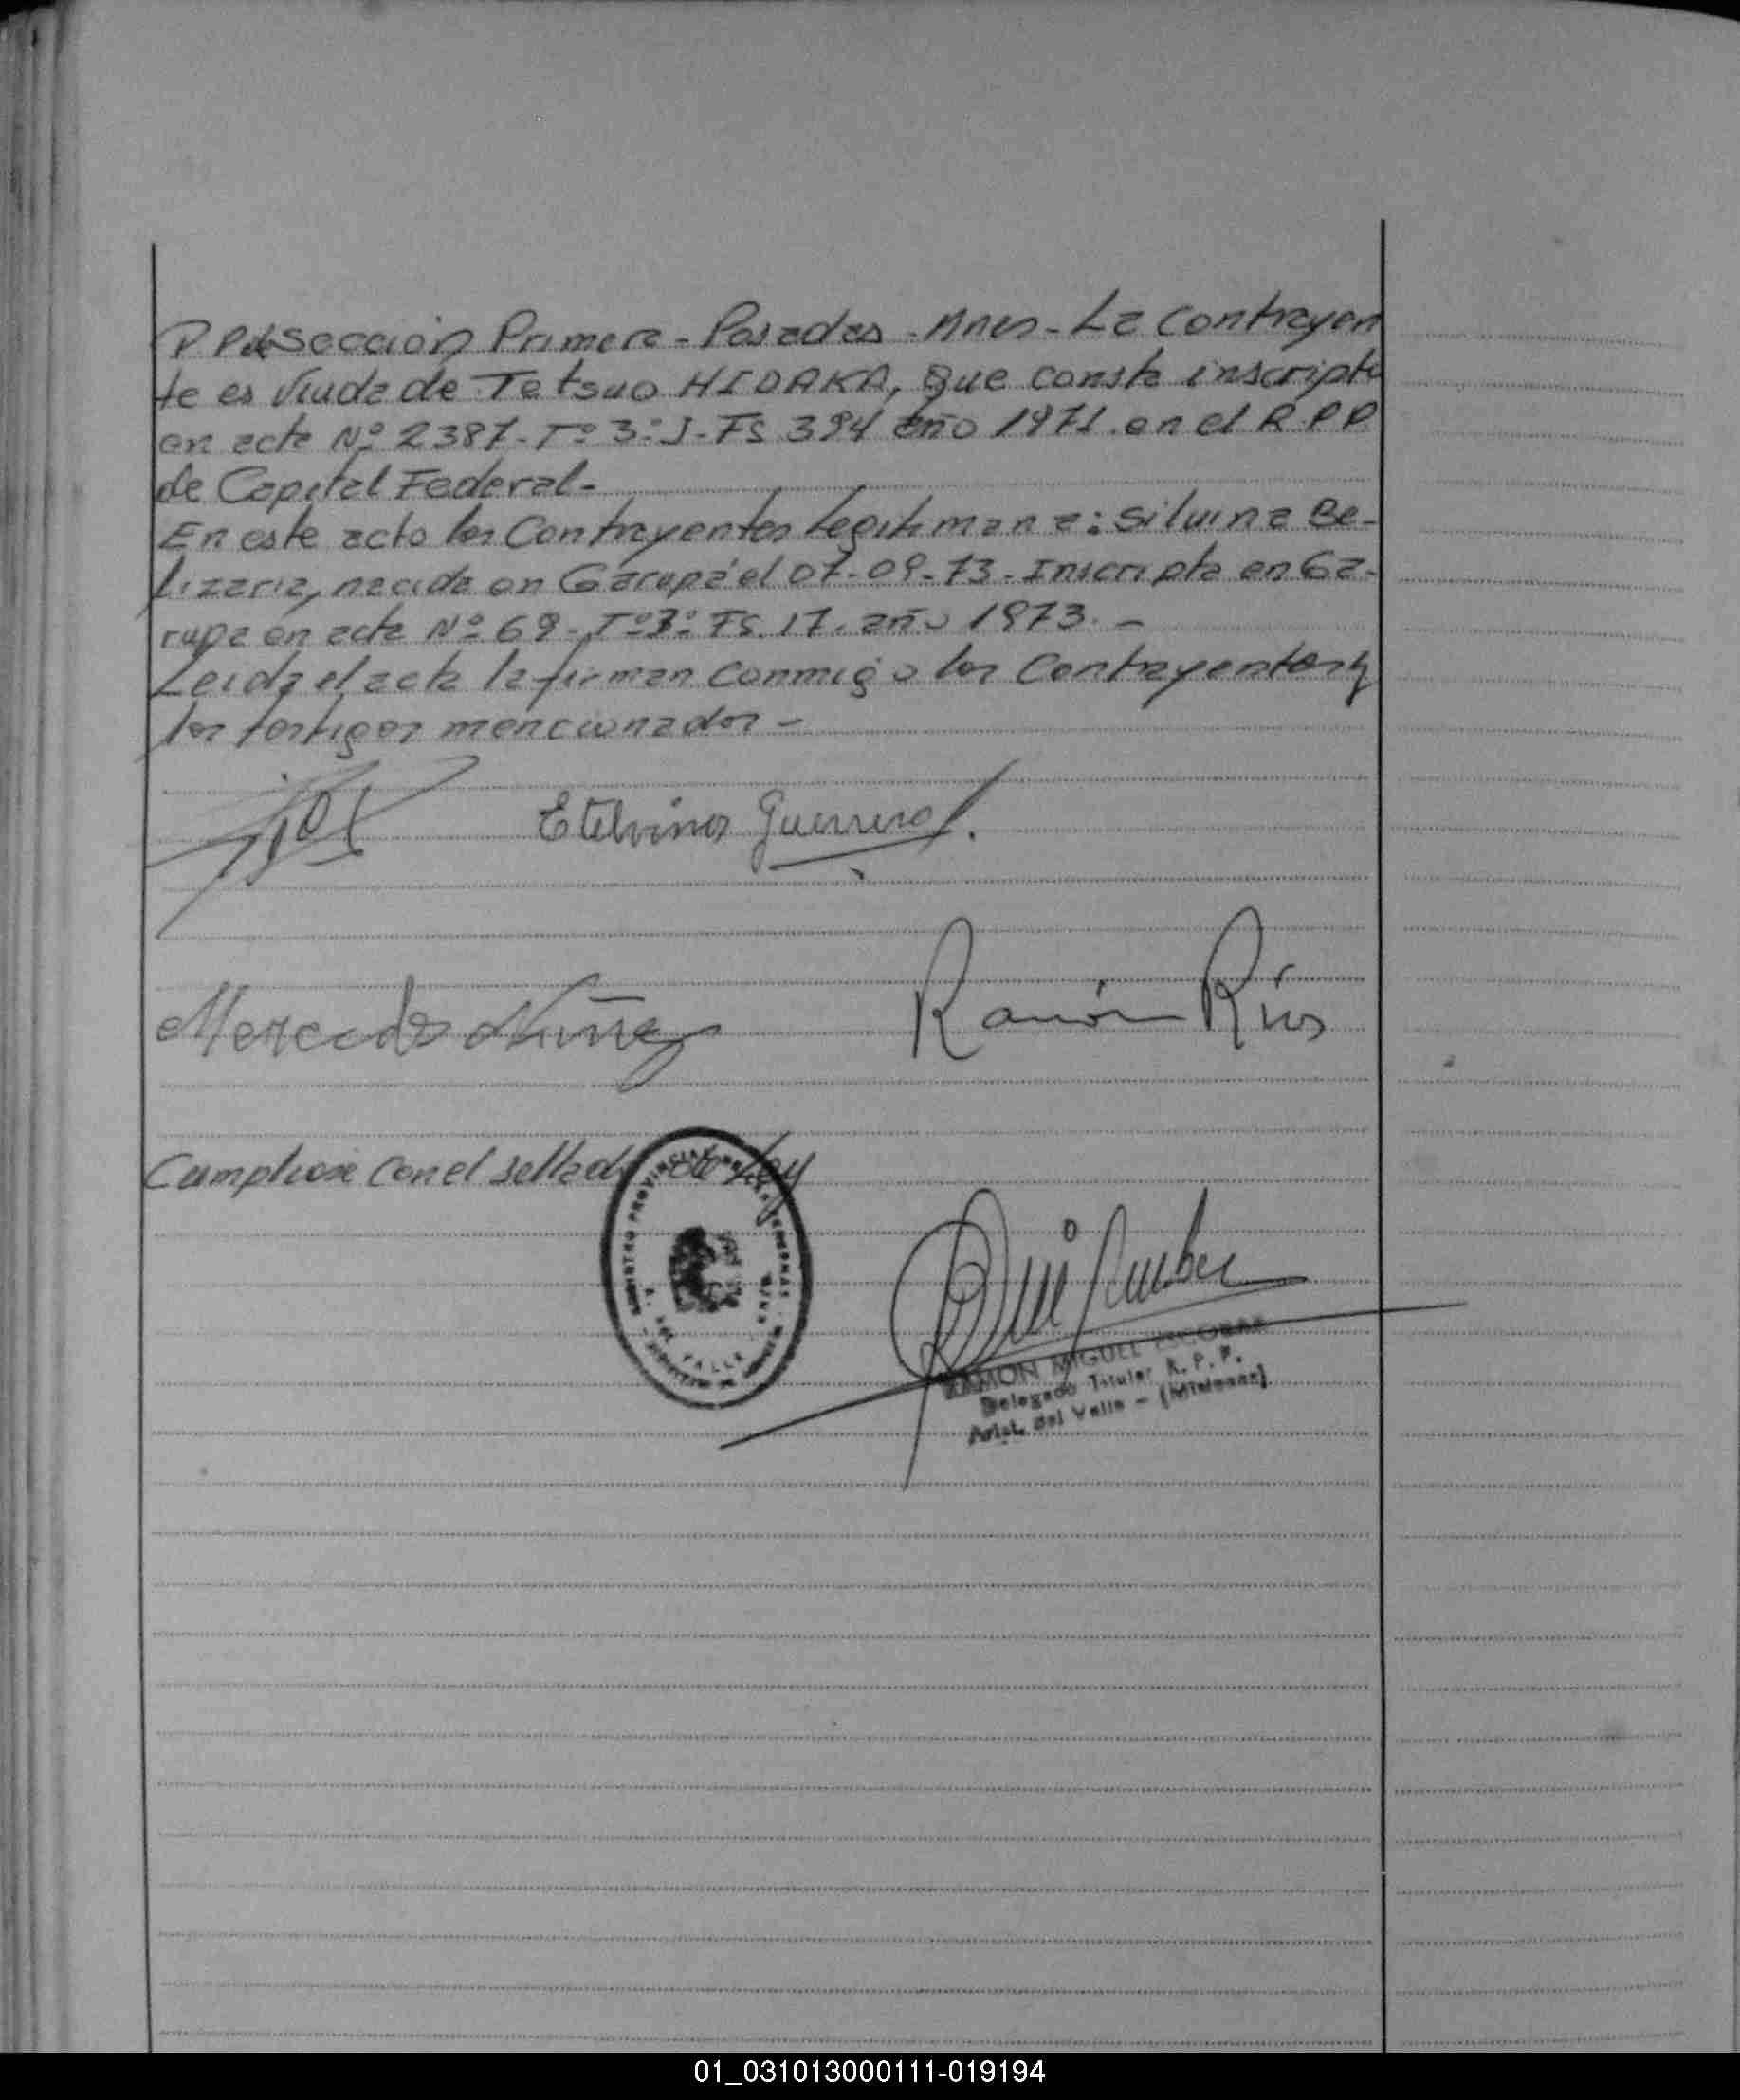 P P de Sección Primera - Posadas - Mnes - La Contrayen
te es Viuda de Tetsuo HIDAKA, que consta inscripto
en acta Nº 2387 - Tº 3º J - Fs 394 año 1971 en el R.P.P.
de Capital Federal -
En este acto los Contrayentes legitiman a: Silvina Be-
lizaria, nacida en Garupá el 07-09-73 - Inscripta en Ga-
rupa en acta Nº 69 - Tº 3º Fs. 17. año 1973. -
Leida el acta la firman conmigo los Contrayentes y
los testigos mencionados -
Etelvina Guerrero
Mercedes Núñez
Ramón Ríos
Cumplióse con el sellado de Ley
REGISTRO PROVINCIAL DE LAS PERSONAS
DEL VALLE
RAMON MIGUEL ESCOBAR
Delegado Titular R. P. P.
Arist. del Valle - (Misiones)
01_031013000111-019194